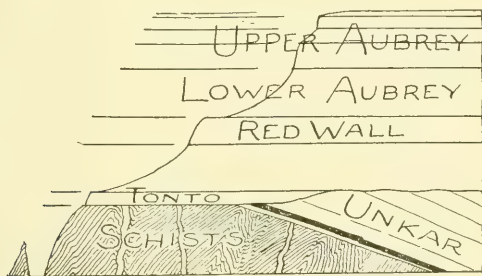 UPPER AUBREY
LOWER AUBREY
RED WALL
TONTO
UNKAR
SCHISTS